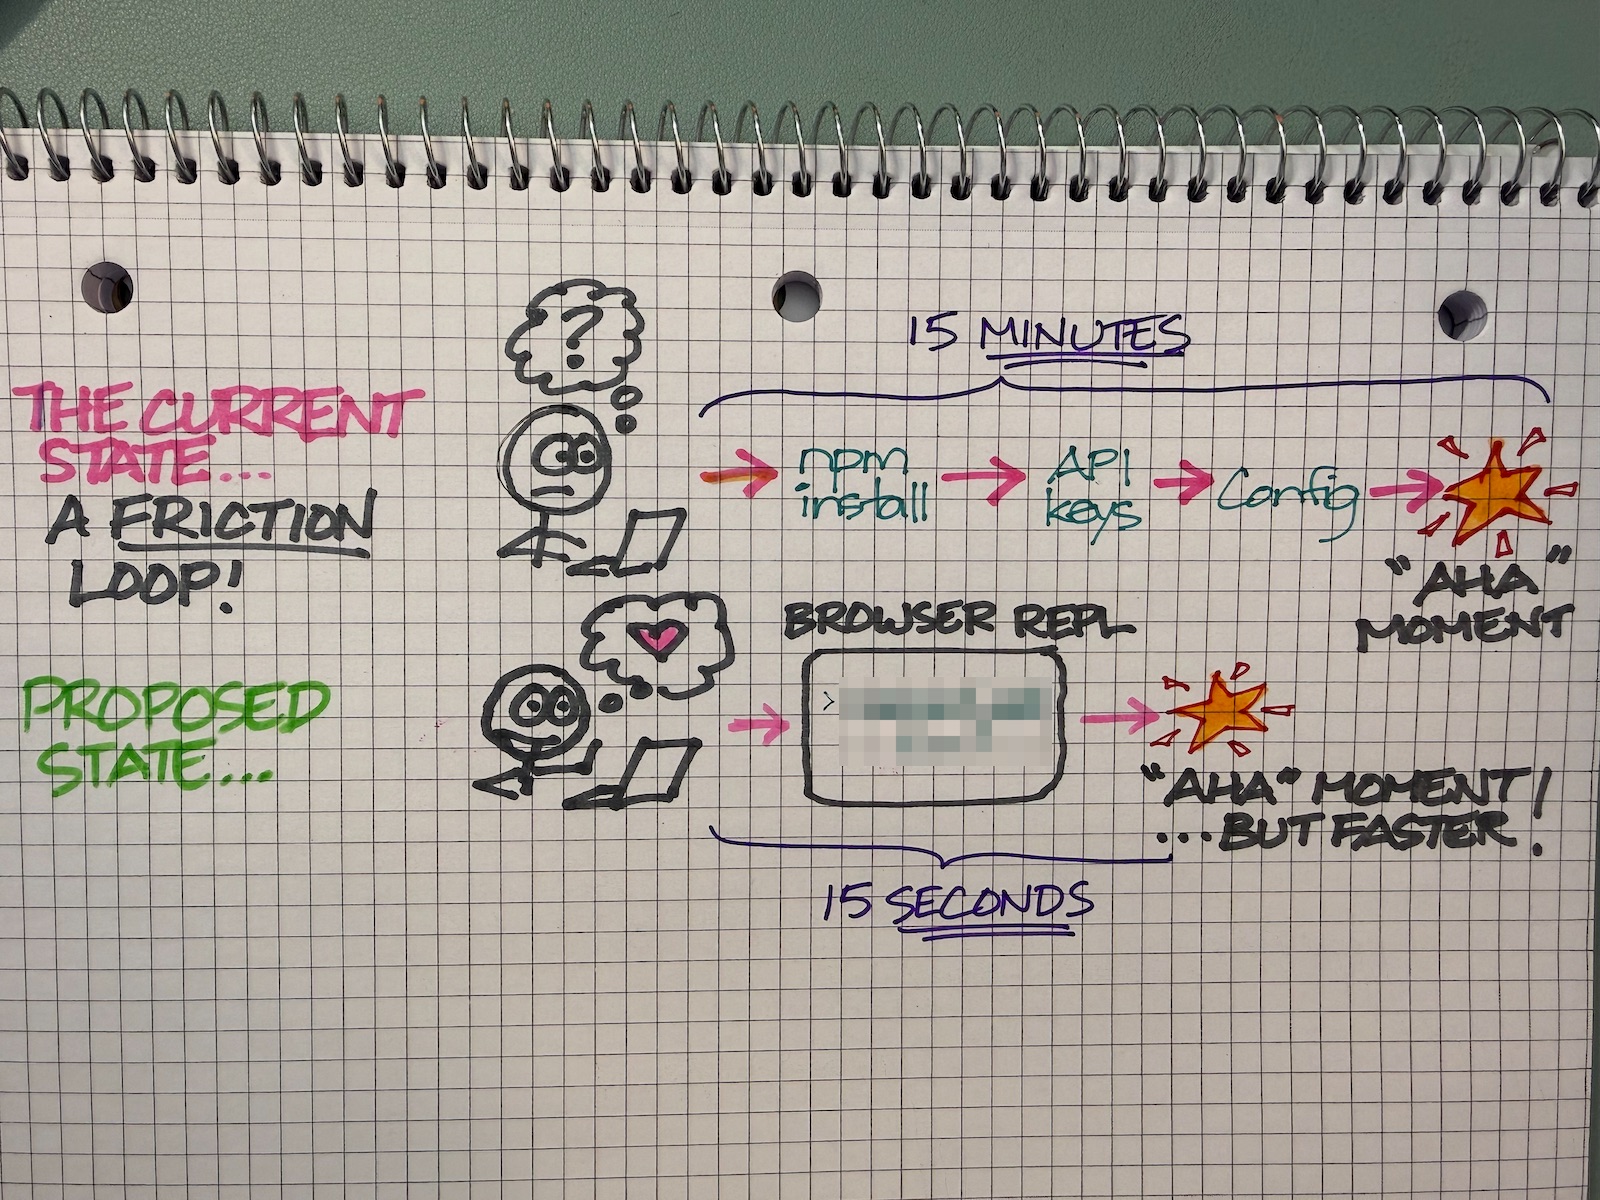 THE CURRENT
STATE...
A FRICTION
LOOP!
?
15 MINUTES
npm
install
API
keys
Config
"AHA"
MOMENT
PROPOSED
STATE...
BROWSER REPL
>
"AHA" MOMENT!
...BUT FASTER!
15 SECONDS